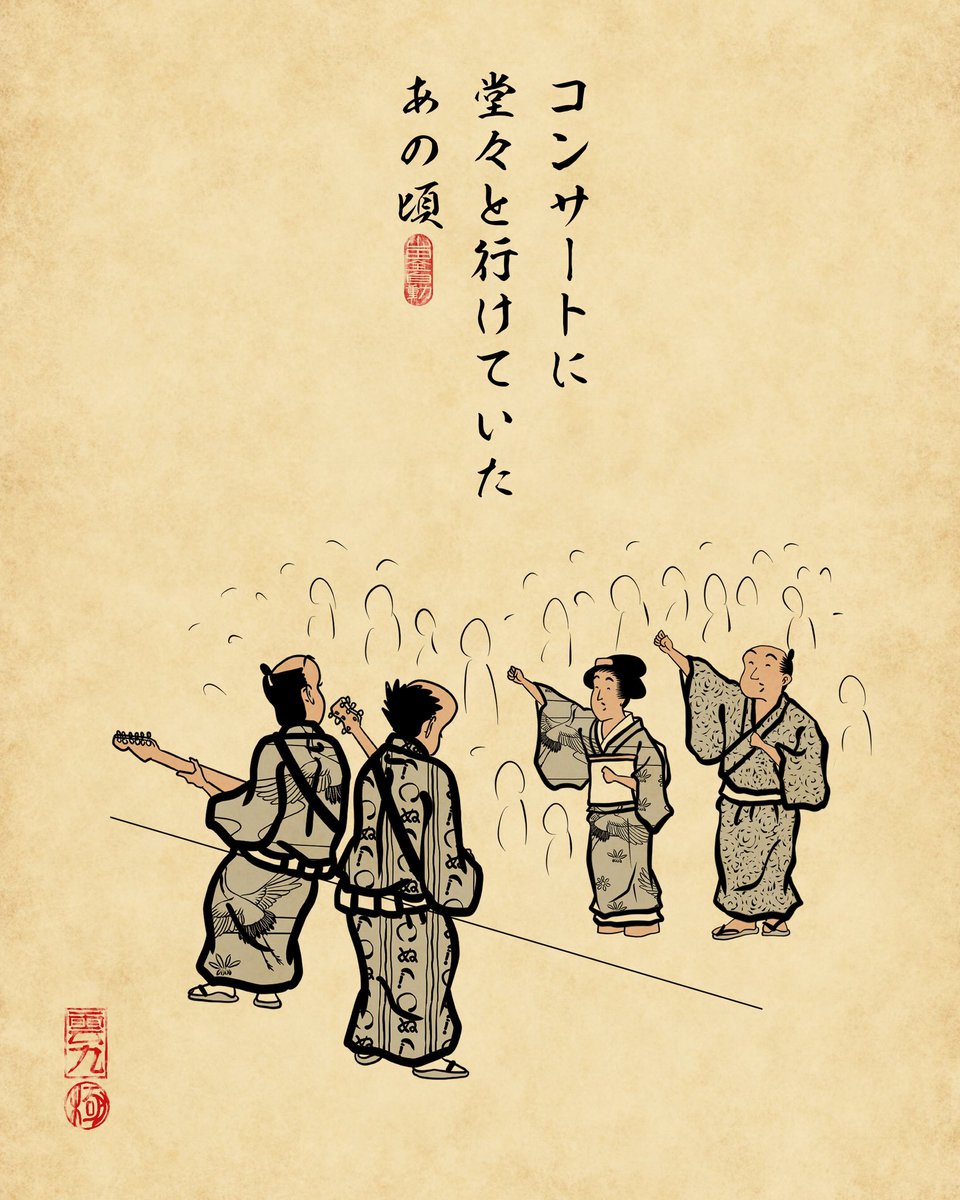 コンサートに
堂々と行けていた
あの頃